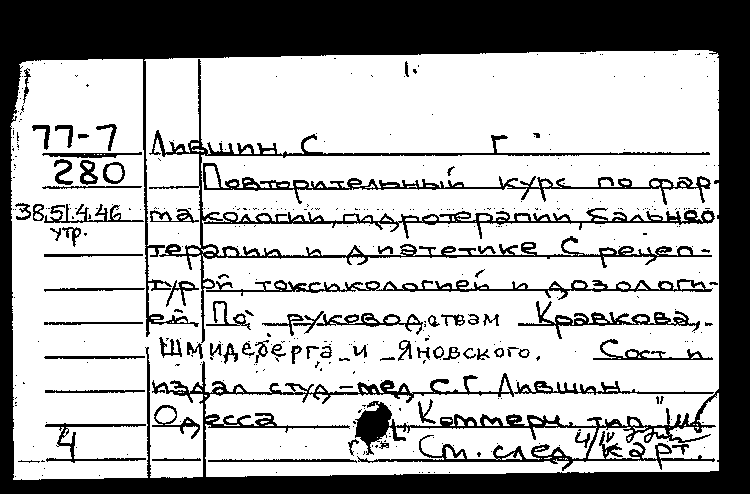 1.
77-7 Лившин, С Г
280 Повторительный курс по фар-
38.51.4.46 макологии, гидротерапии, бальнео-
утр. терапии и диэтетике. С рецеп-
турой, токсикологией и дозологи-
ей. По руководствам Кравкова,
Шмидеберга и Яновского. Сост и
издал студ-мед С.Г. Лившин.
Одесса, Коммерч. тип
4 См. след карт.